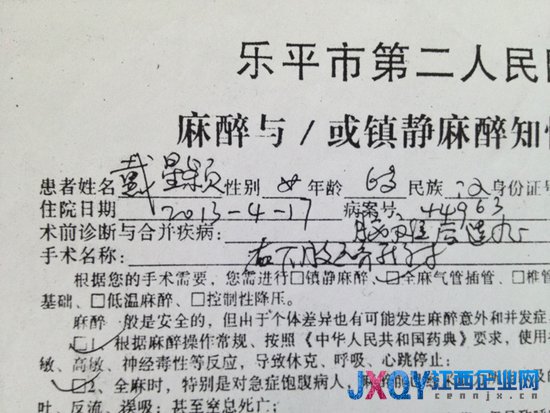 乐平市第二人民
麻醉与/或镇静麻醉知
患者姓名 戴星颖 性别 女 年龄 6岁 民族 汉 身份证号
住院日期 2013-4-17 病案号: 44963
术前诊断与合并疾病:
手术名称: 右下肢
根据您的手术需要，您需进行□镇静麻醉、□全麻气管插管，□椎管
基础、□低温麻醉、□控制性降压。
麻醉一般是安全的，但由于个体差异也有可能发生麻醉意外和并发症
□1、根据麻醉操作常规、按照《中华人民共和国药典》要求，使用
敏、高敏、神经毒性等反应，导致休克、呼吸、心跳停止;
□2、全麻时，特别是对急症饱腹病人，麻醉
吐、反流、误吸;甚至窒息死亡;
JXQY 江西企业网
cennjx.cn